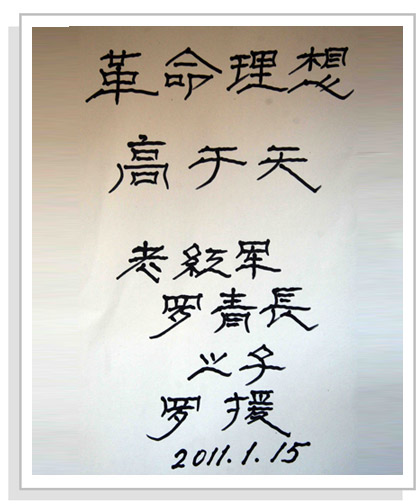 革命理想
高于天
老紅军
罗青長
之子
罗援
2011.1.15